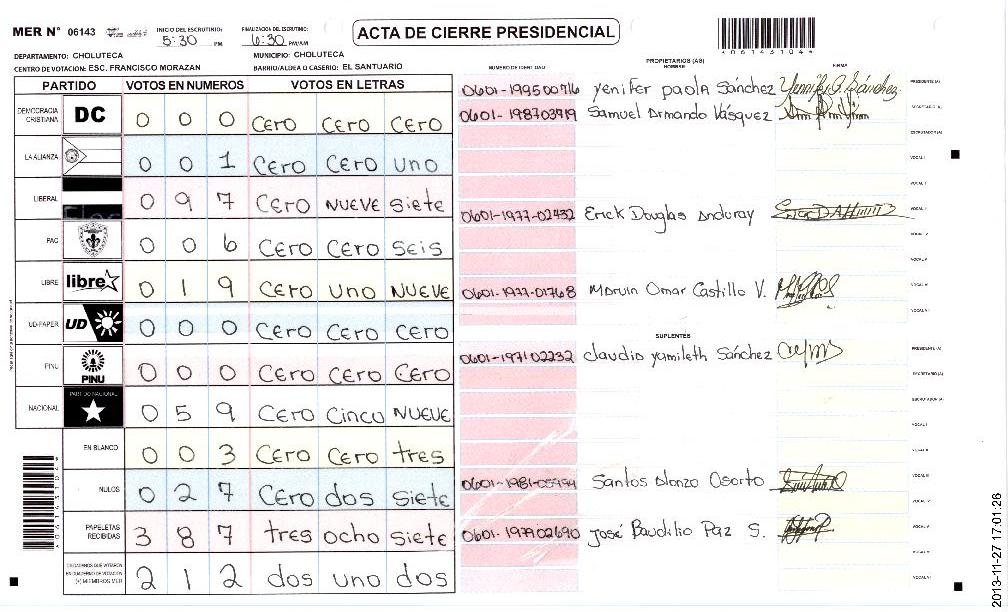 MER N° 06143 INICIO DEL ESCRUTINIO: 5:30 PM FINALIZACION DEL ESCRUTINIO: 6:30 PM/AM
ACTA DE CIERRE PRESIDENCIAL
DEPARTAMENTO: CHOLUTECA MUNICIPIO: CHOLUTECA
CENTRO DE VOTACION: ESC. FRANCISCO MORAZAN BARRIO/ALDEA O CASERIO: EL SANTUARIO
PARTIDO VOTOS EN NUMEROS VOTOS EN LETRAS
DEMOCRACIA CRISTIANA DC 0 0 0 Cero Cero Cero
LA ALIANZA 0 0 1 Cero Cero uno
LIBERAL 0 9 7 Cero NUEVE Siete
PAC 0 0 6 Cero Cero SEIS
LIBRE libre 0 1 9 Cero uno NUEVE
UD-FAPER UD 0 0 0 Cero Cero Cero
PINU PINU 0 0 0 Cero Cero Cero
NACIONAL PARTIDO NACIONAL 0 5 9 Cero Cinco NUEVE
EN BLANCO 0 0 3 Cero Cero tres
NULOS 0 2 7 Cero dos siete
PAPELETAS RECIBIDAS 3 8 7 tres ocho siete
CIUDADANOS QUE VOTARON EN CUADERNO DE VOTACION (+) MIEMBROS MER 2 1 2 dos uno dos
NUMERO DE IDENTIDAD PROPIETARIOS (AS) NOMBRE FIRMA
Yenifer paola Sánchez PRESIDENTE (A)
Samuel Armando Vásquez SECRETARIO (A)
ESCRUTADOR (A)
VOCAL I
0601-1977-02432 Erick Douglas Andoray
0601-1977-01768 Marvin Omar Castillo V.
SUPLENTES
0601-197102232 Claudia yamileth Sánchez PRESIDENTE (A)
SECRETARIO (A)
ESCRUTADOR (A)
Santos Alonzo Osorto
0601-197902690 José Baudilio Paz S.
2013-11-27 17:01:26